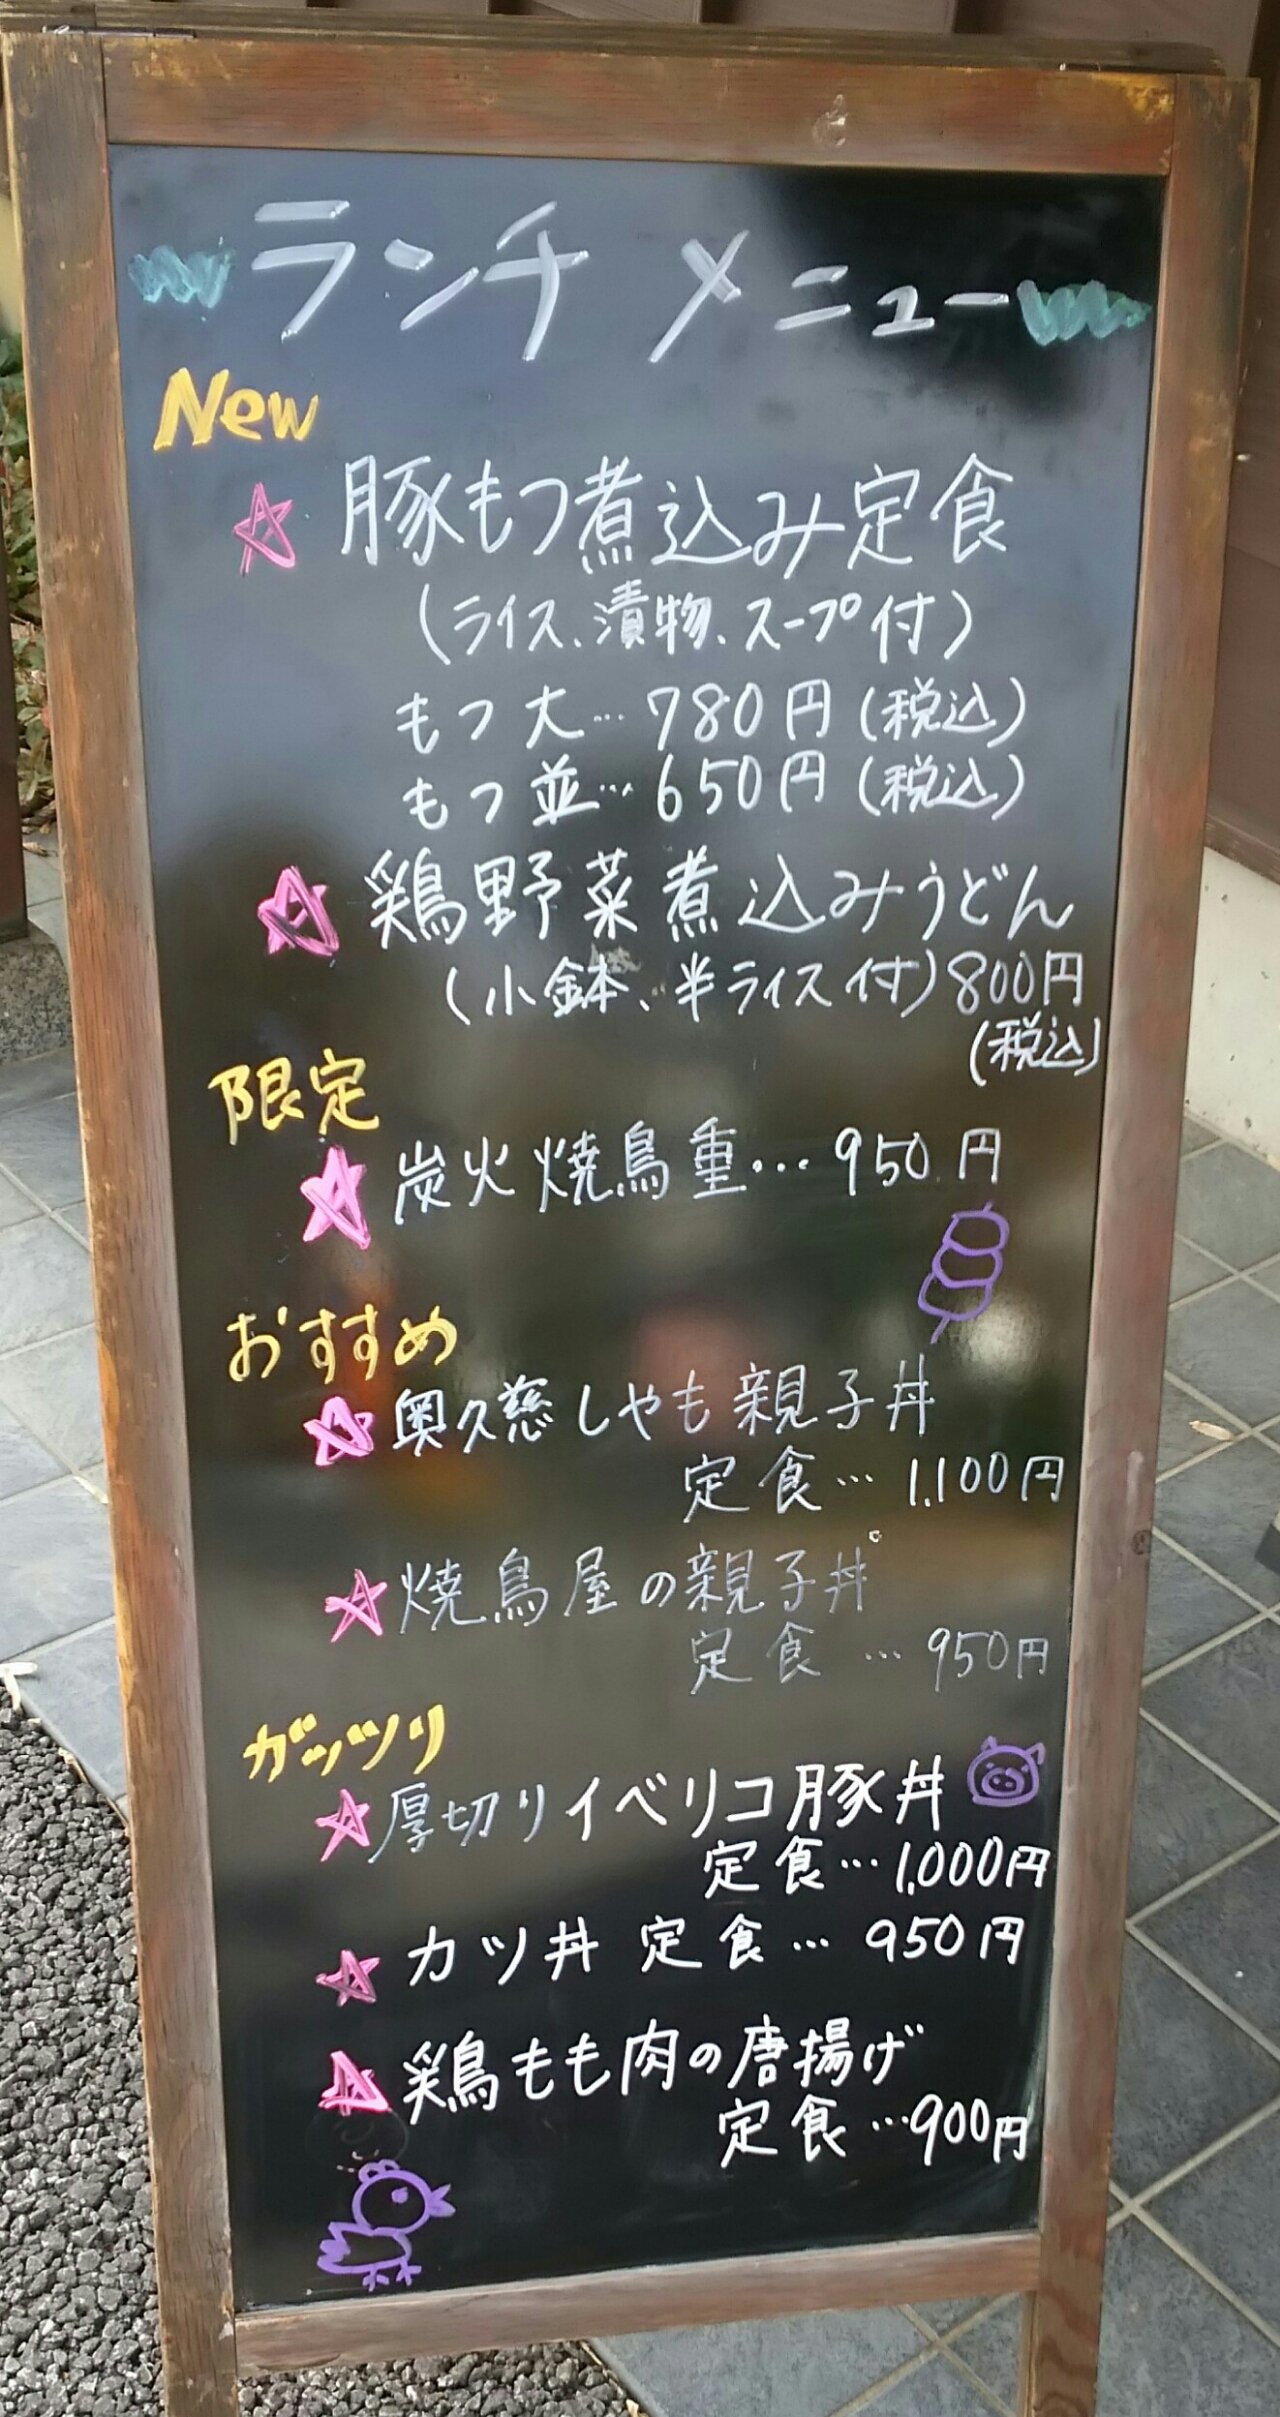 ランチ メニュー
New
豚もつ煮込み定食
(ライス、漬物、スープ付)
もつ大…780円(税込)
もつ並…650円(税込)
鶏野菜煮込みうどん
(小鉢、半ライス付)800円
(税込)
限定
炭火焼鳥重…950円
おすすめ
奥久慈しゃも親子丼
定食…1,100円
焼鳥屋の親子丼
定食…950円
ガッツリ
厚切りイベリコ豚丼
定食…1,000円
カツ丼 定食…950円
鶏もも肉の唐揚げ
定食…900円